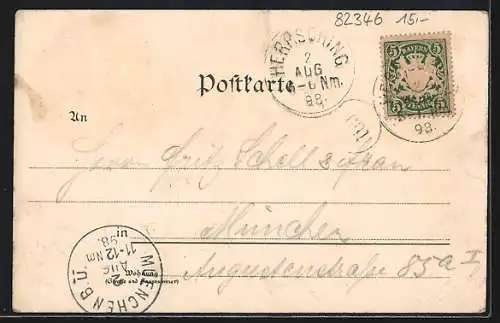 82346 15,-
HERRSCHING
2
AUG
5-6 Nm.
98.
BAYERN
5 5
5 PFENNIG 5
98.
Postkarte
An
Herrn Fritz Schell & Frau
München
Augustenstraße 85a I
Wohnung
(Straße und Hausnummer)
MUENCHEN B.Ü.
2
AUG
11-12 Nm
98.
in